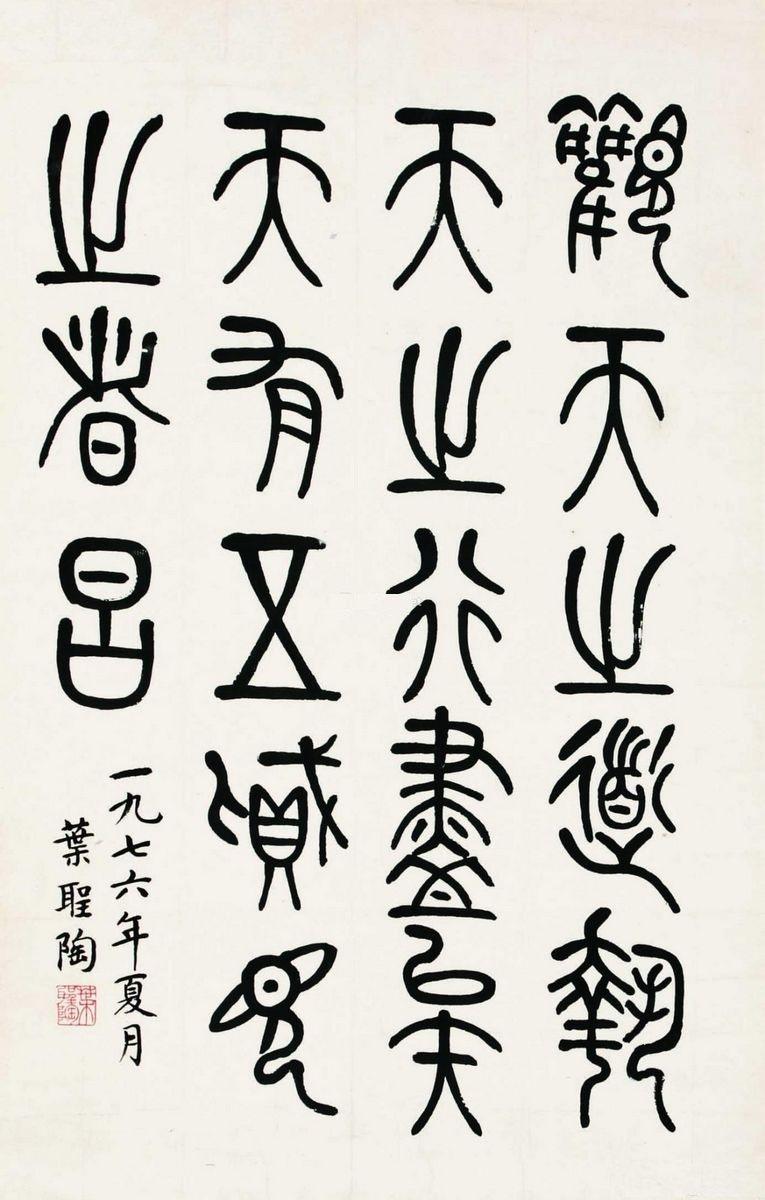 觀天之道執
天之行盡矣
天有五賊見
之者昌
一九七六年夏月
葉聖陶
葉聖陶